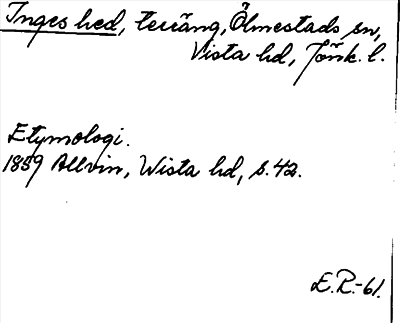 Inges hed, terräng, Ölmestads sn,
Vista hd, Jönk. l.
Etymologi.
1859 Allvin, Wista hd, s. 42.
E.R.-61.